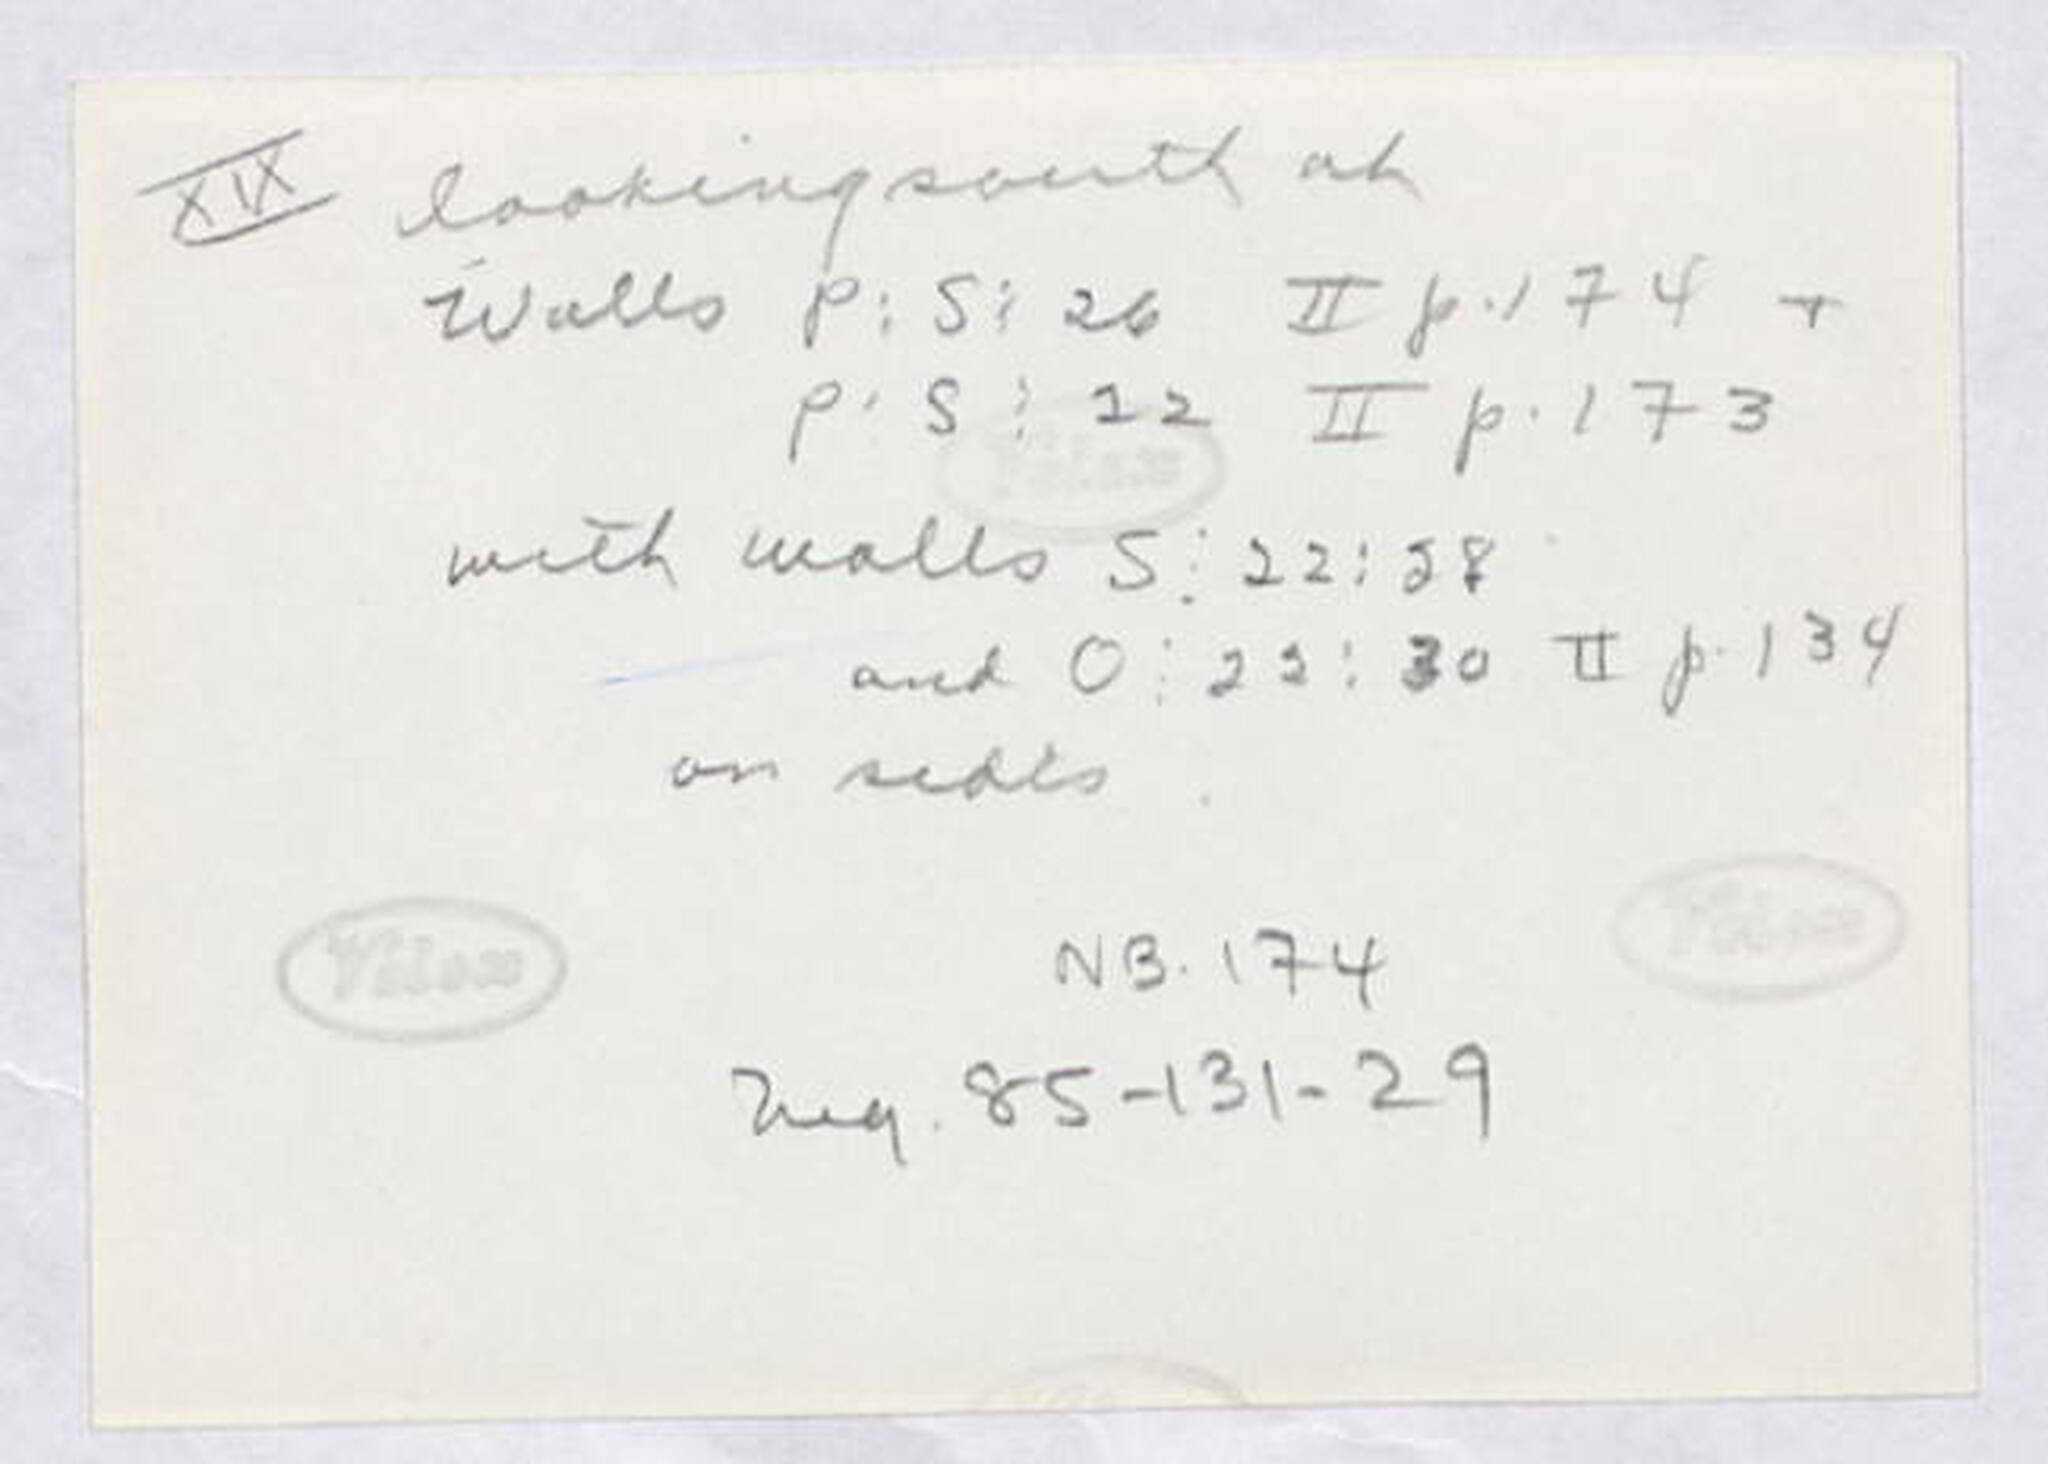 XIX looking south at
Walls P:S:26 II p.174 +
P:S:22 II p.173
with walls S:22:28
and O:22:30 II p.134
on sides.
Velox
Velox
Velox
NB.174
Neg. 85-131-29